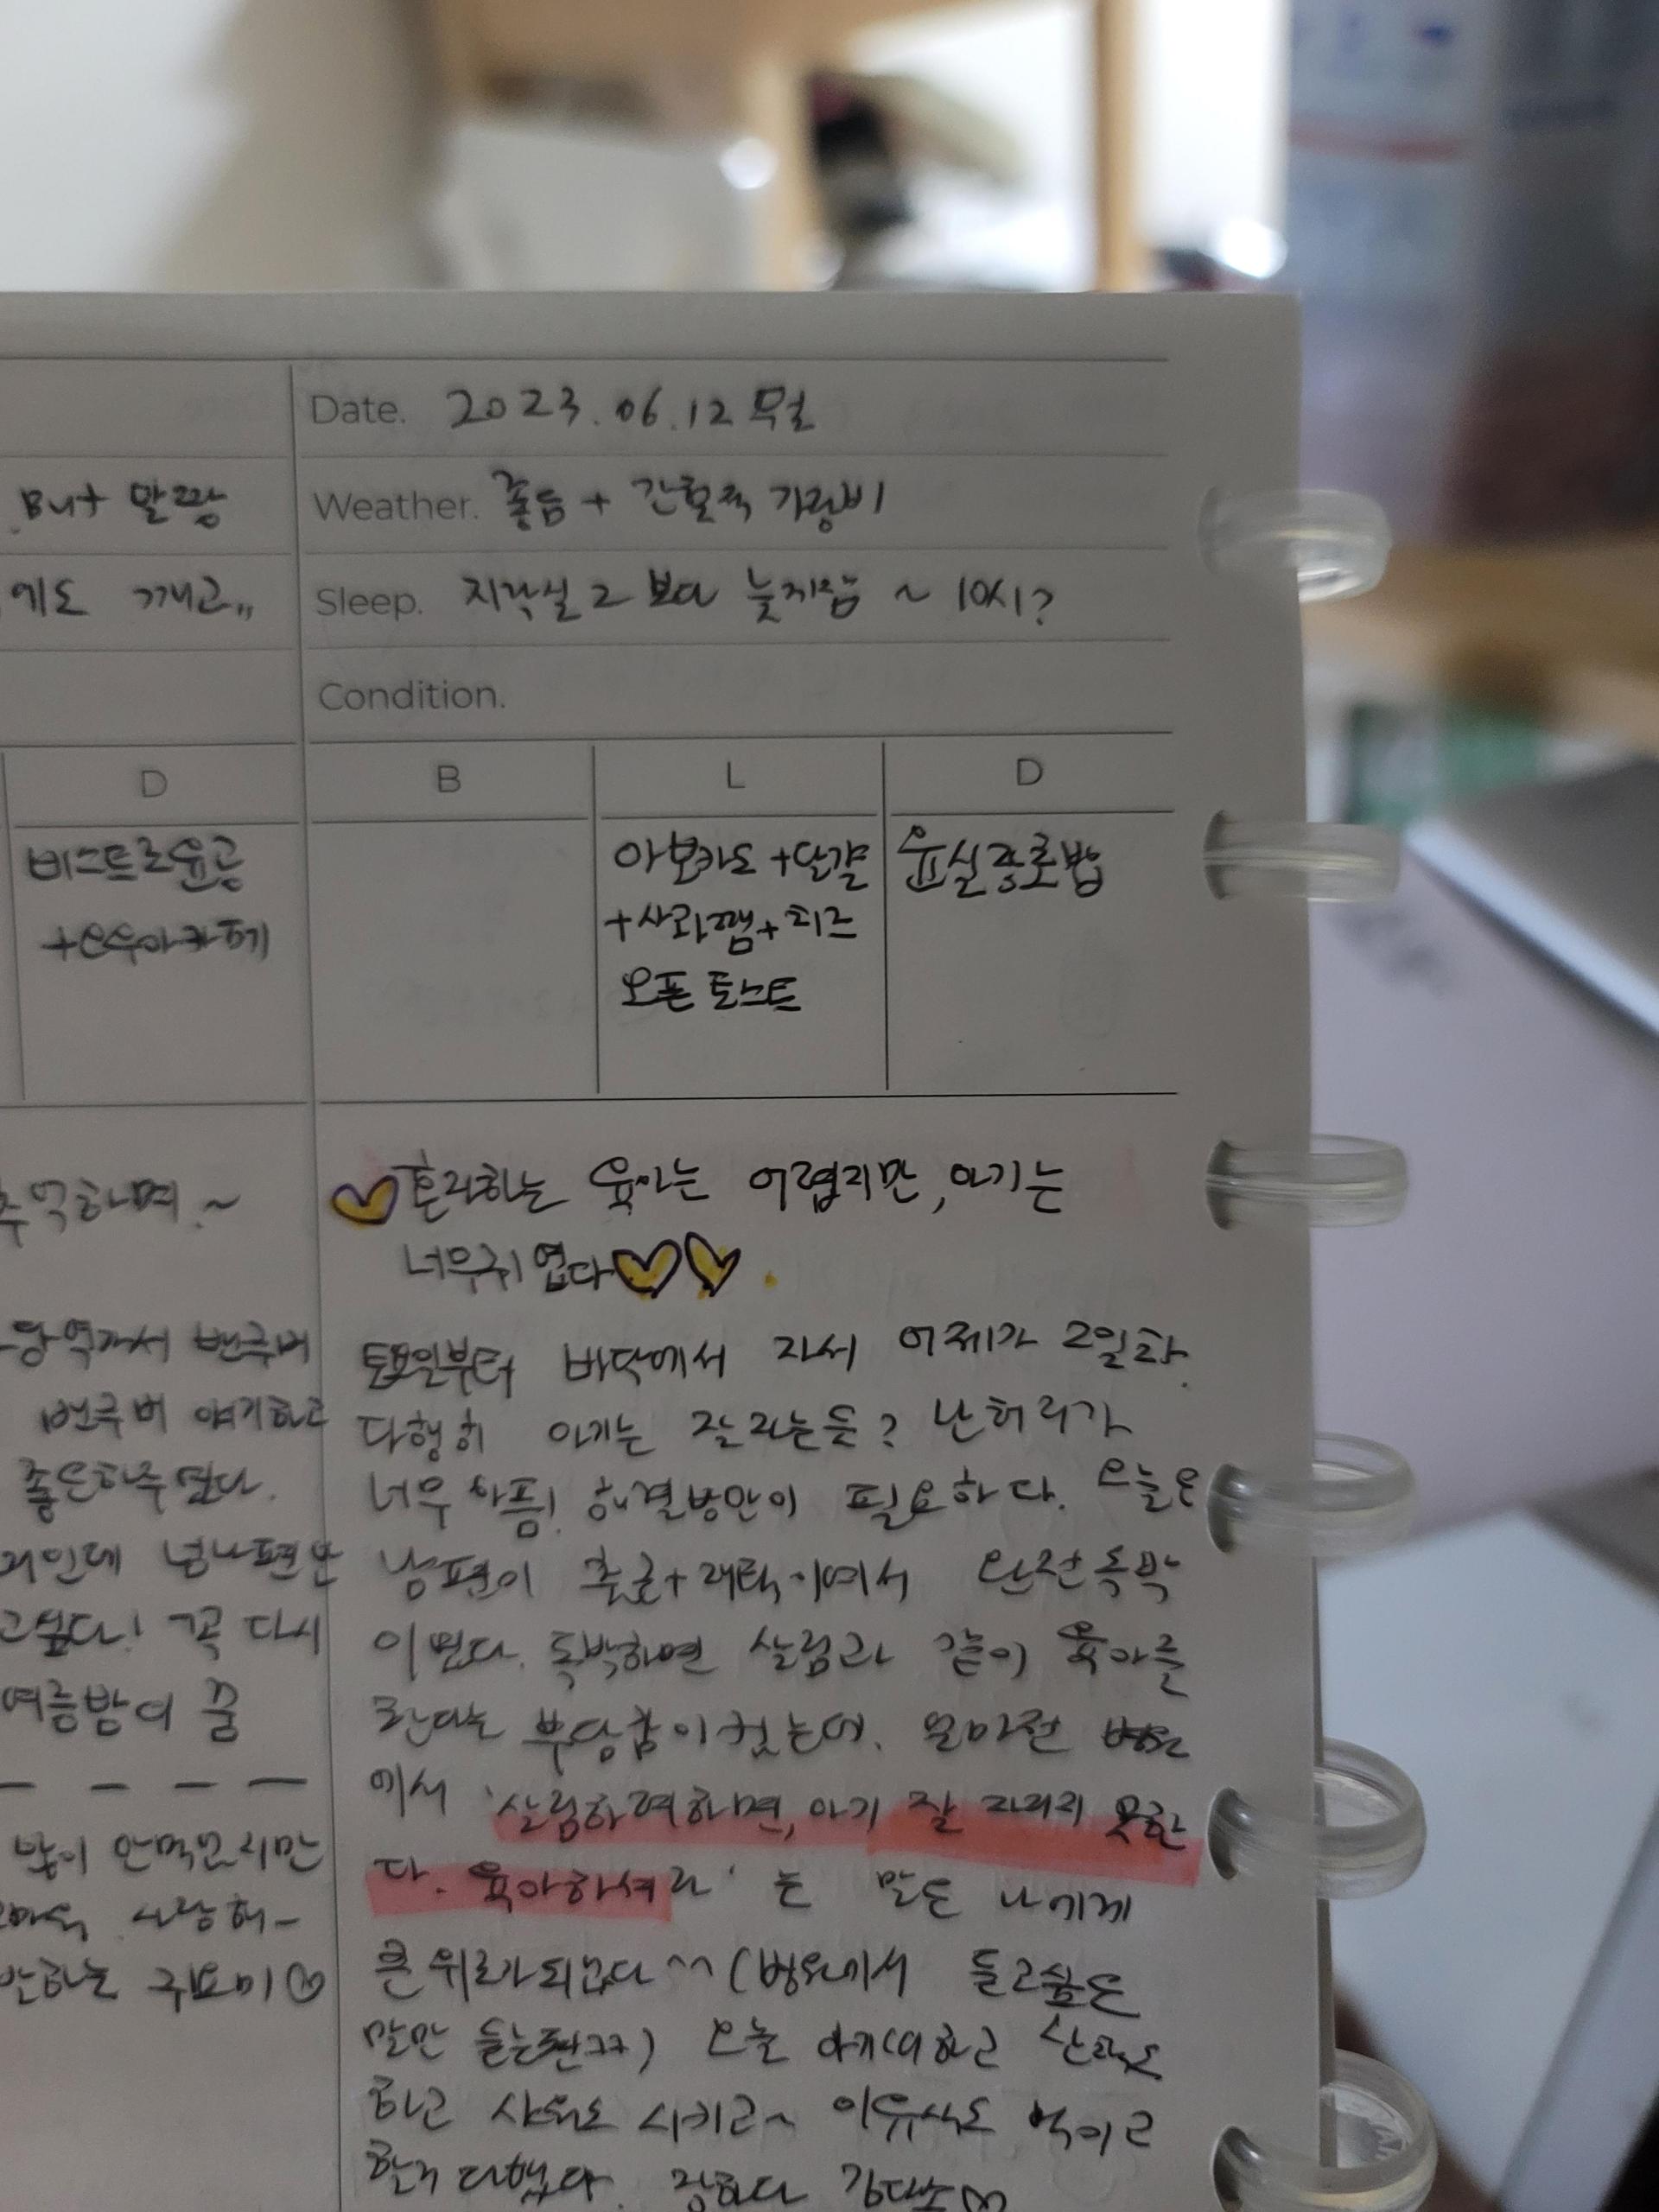 .But 말짱
에도 깨고,,
D
비스트로윤공
+연수아카페
추억하며.~
좋은하루였다.
고싶다! 꼭 다시
여름밤의 꿈
많이 안먹었지만
사랑해~
귀요미♡
Date. 2023.06.12 무월
Weather. 좋음 + 간헐적 가랑비
Sleep. 지각실 2 보다 늦게잠 ~ 10시?
Condition.
B L D
아보카도 + 달걀
+사과잼+치즈
오픈 토스트
윤실장로밥
♥혼자하는 육아는 어렵지만, 아기는
너무귀엽다♥♥.
토요일부터 바닥에서 자서 어제가 2일차.
다행히 아기는 잘자는듯? 난 허리가
너무 아픔! 해결방안이 필요하다. 오늘은
남편이 출근+재택이여서 완전독박
이었다. 독박하면 살림과 같이 육아를
한다는 부담감이 컸는데. 얼마전 병원
에서 '살림하려하면, 아기 잘 자라지 못한
다. 육아하셔라' 는 말은 나에게
큰위로가되었다^^ (병원에서 듣고싶은
말만 듣는편ㅋㅋ) 오늘 아기띠하고 산책도
하고 샤워도 시키고~ 이유식도 먹이고
할거 다했다. 장하다